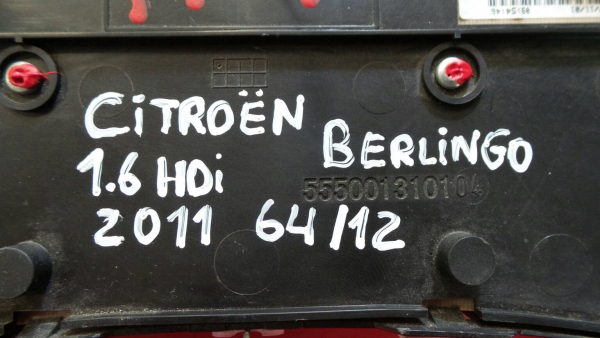 CiTROËN BERLiNGO
1.6 HDi
555001310104
2011 64/12